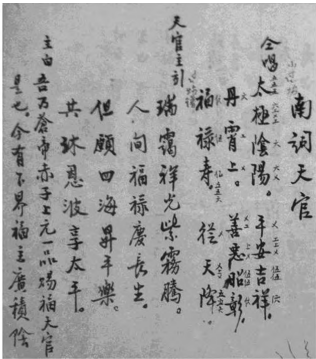 南詞天官
仝唱 太極陰陽。平安吉祥。
丹霄上。善惡昭彰。
福祿壽。從天降。
天官主引 瑞靄祥光紫霧騰。
人間福祿慶長生。
但願四海昇平樂。
共球恩波享太平。
主白 吾乃蒼帝赤子上元一品賜福天官
是也。今有下界福主廣積陰